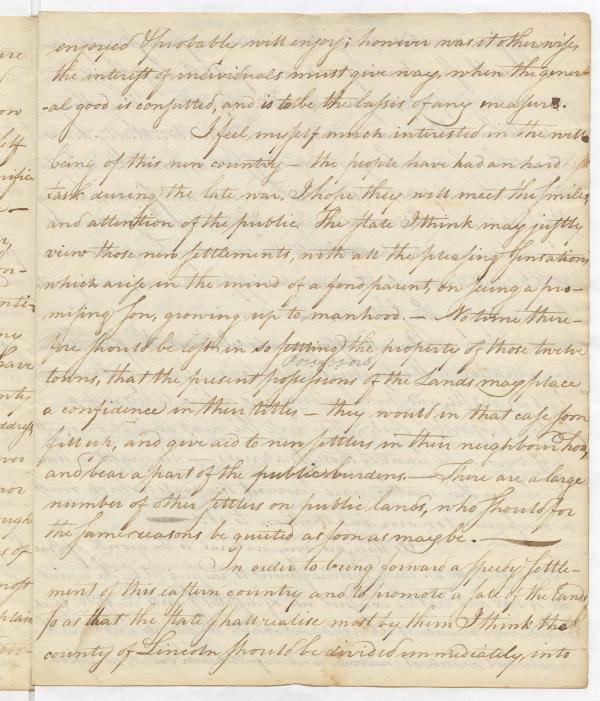 enjoyed & probable will enjoy; however was it otherwise,
the interest of individuals must give way, when the gener-
-al good is consulted, and is to be the bassis of any measure.
I feel myself much interested in the well
being of this new country — the people have had an hard
task during the late war, I hope they will meet the smiles
and attention of the public. The state I think may justly
view those new settlements, with all the pleasing sensations
which arise in the mind of a fond parent, on seeing a pro-
mising son, growing up to manhood. — No time there-
fore should be lost in so settling the property of those twelve
towns, that the present possessions of the Lands may place
possessors
a confidence in their titles — they would in that case soon
fill up, and give aid to new settlers in their neighbourhood,
and bear a part of the public burdens. — There are a large
number of other settlers on public lands, who should for
the same reasons be quieted as soon as may be. —
In order to bring forward a speedy settle-
ment of this eastern country and to promote a sale of the Lands
so as that the state shall realise most by them I think the
county of Lincoln should be divided immediately, into
are
ow
self
on-
any
have
nty
address
ver
nor
ough
s of
most
plain